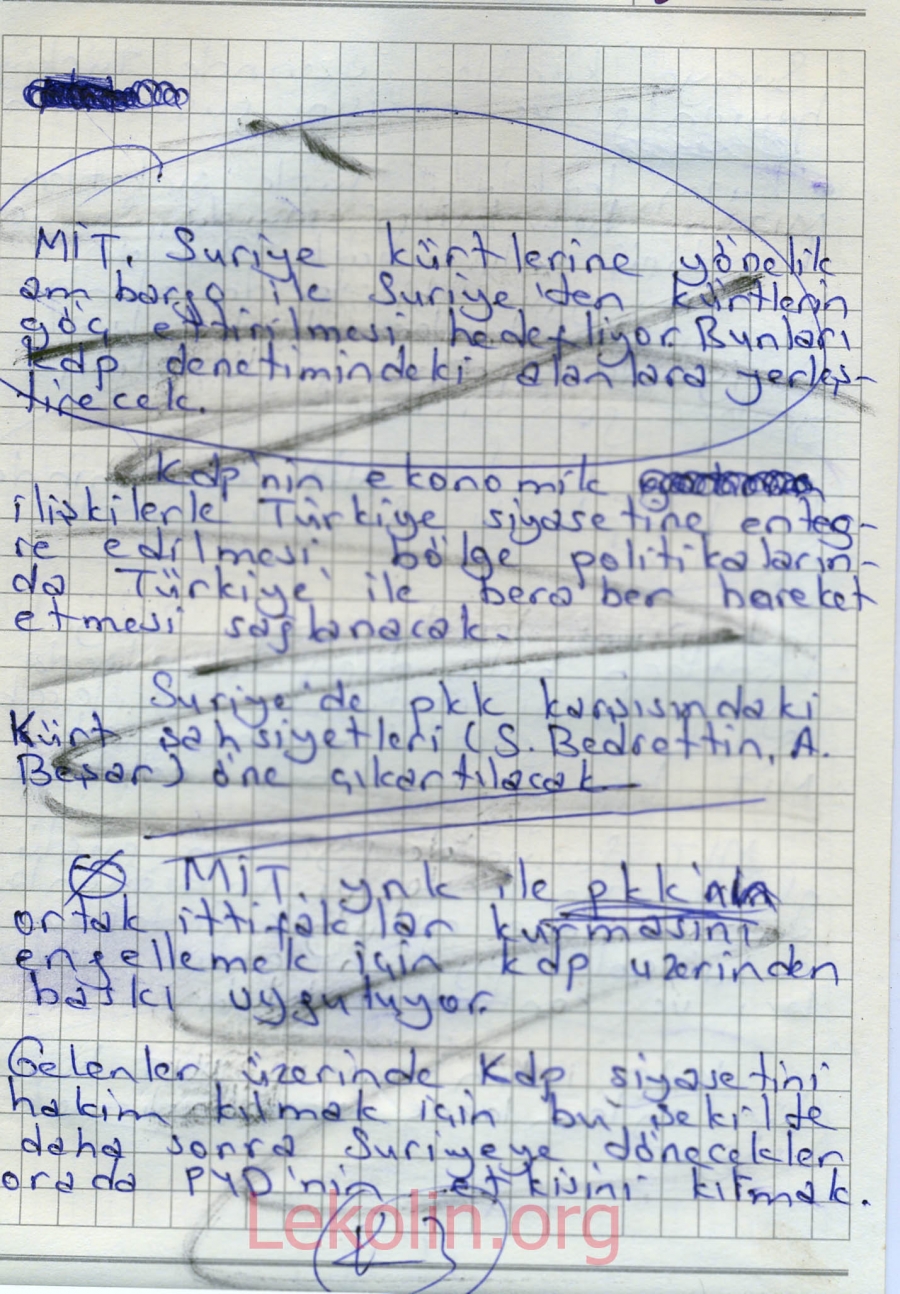 MİT. Suriye kürtlerine yönelik
ambargo ile Suriye'den kürtlerin
göç ettirilmesi hedefliyor. Bunları
kdp denetimindeki alanlara yerleş-
tirecek.
Kdp'nin ekonomik
ilişkilerle Türkiye siyasetine enteg-
re edilmesi bölge politikaların-
da Türkiye ile beraber hareket
etmesi sağlanacak.
Suriye'de pkk karşısındaki
Kürt şahsiyetleri (S. Bedrettin, A.
Beşar) öne çıkartılacak
MİT. ynk ile pkk'nın
ortak ittifaklar kurmasını
engellemek için kdp üzerinden
baskı uyguluyor.
Gelenler üzerinde Kdp siyasetini
hakim kılmak için bu şekilde
daha sonra Suriyeye dönecekler
orada PYD'nin etkisini kırmak.
Lekolin.org